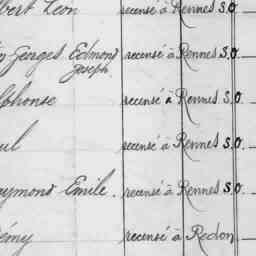 bert Léon recensé à Rennes S.O.
Georges Edmond recensé à Rennes S.O.
Joseph
lphonse recensé à Rennes S.O.
ul recensé à Rennes S.O.
aymond Emile. recensé à Rennes S.O.
émy recensé à Redon